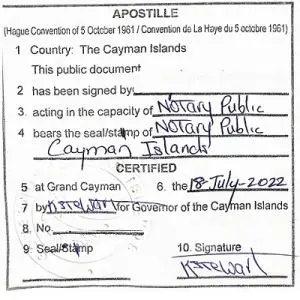 APOSTILLE
(Hague Convention of 5 October 1961 / Convention de La Haye du 5 octobre 1961)
1 Country: The Cayman Islands
This public document
2 has been signed by:
3. acting in the capacity of Notary Public
4 bears the seal/stamp of Notary Public
Cayman Islands
CERTIFIED
5 at Grand Cayman 6. the 18-July-2022
7 by KStewart for Governor of the Cayman Islands
8. No.
9. Seal/Stamp 10. Signature
KStewart